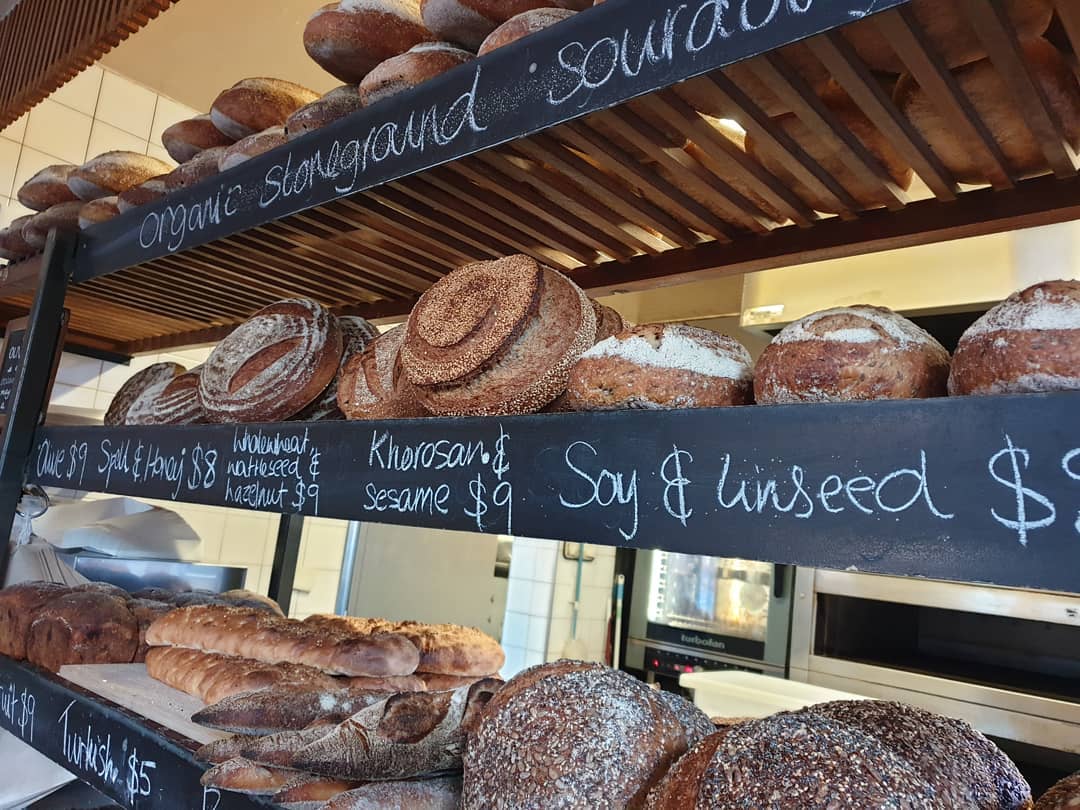 organic stoneground sourdou
Olive $9
Spelt & Honey $8
Wholewheat,
wattleseed &
hazelnut $9
Khorosan &
sesame $9
Soy & Linseed $8
turbofan
ruit $9
Turkish $5